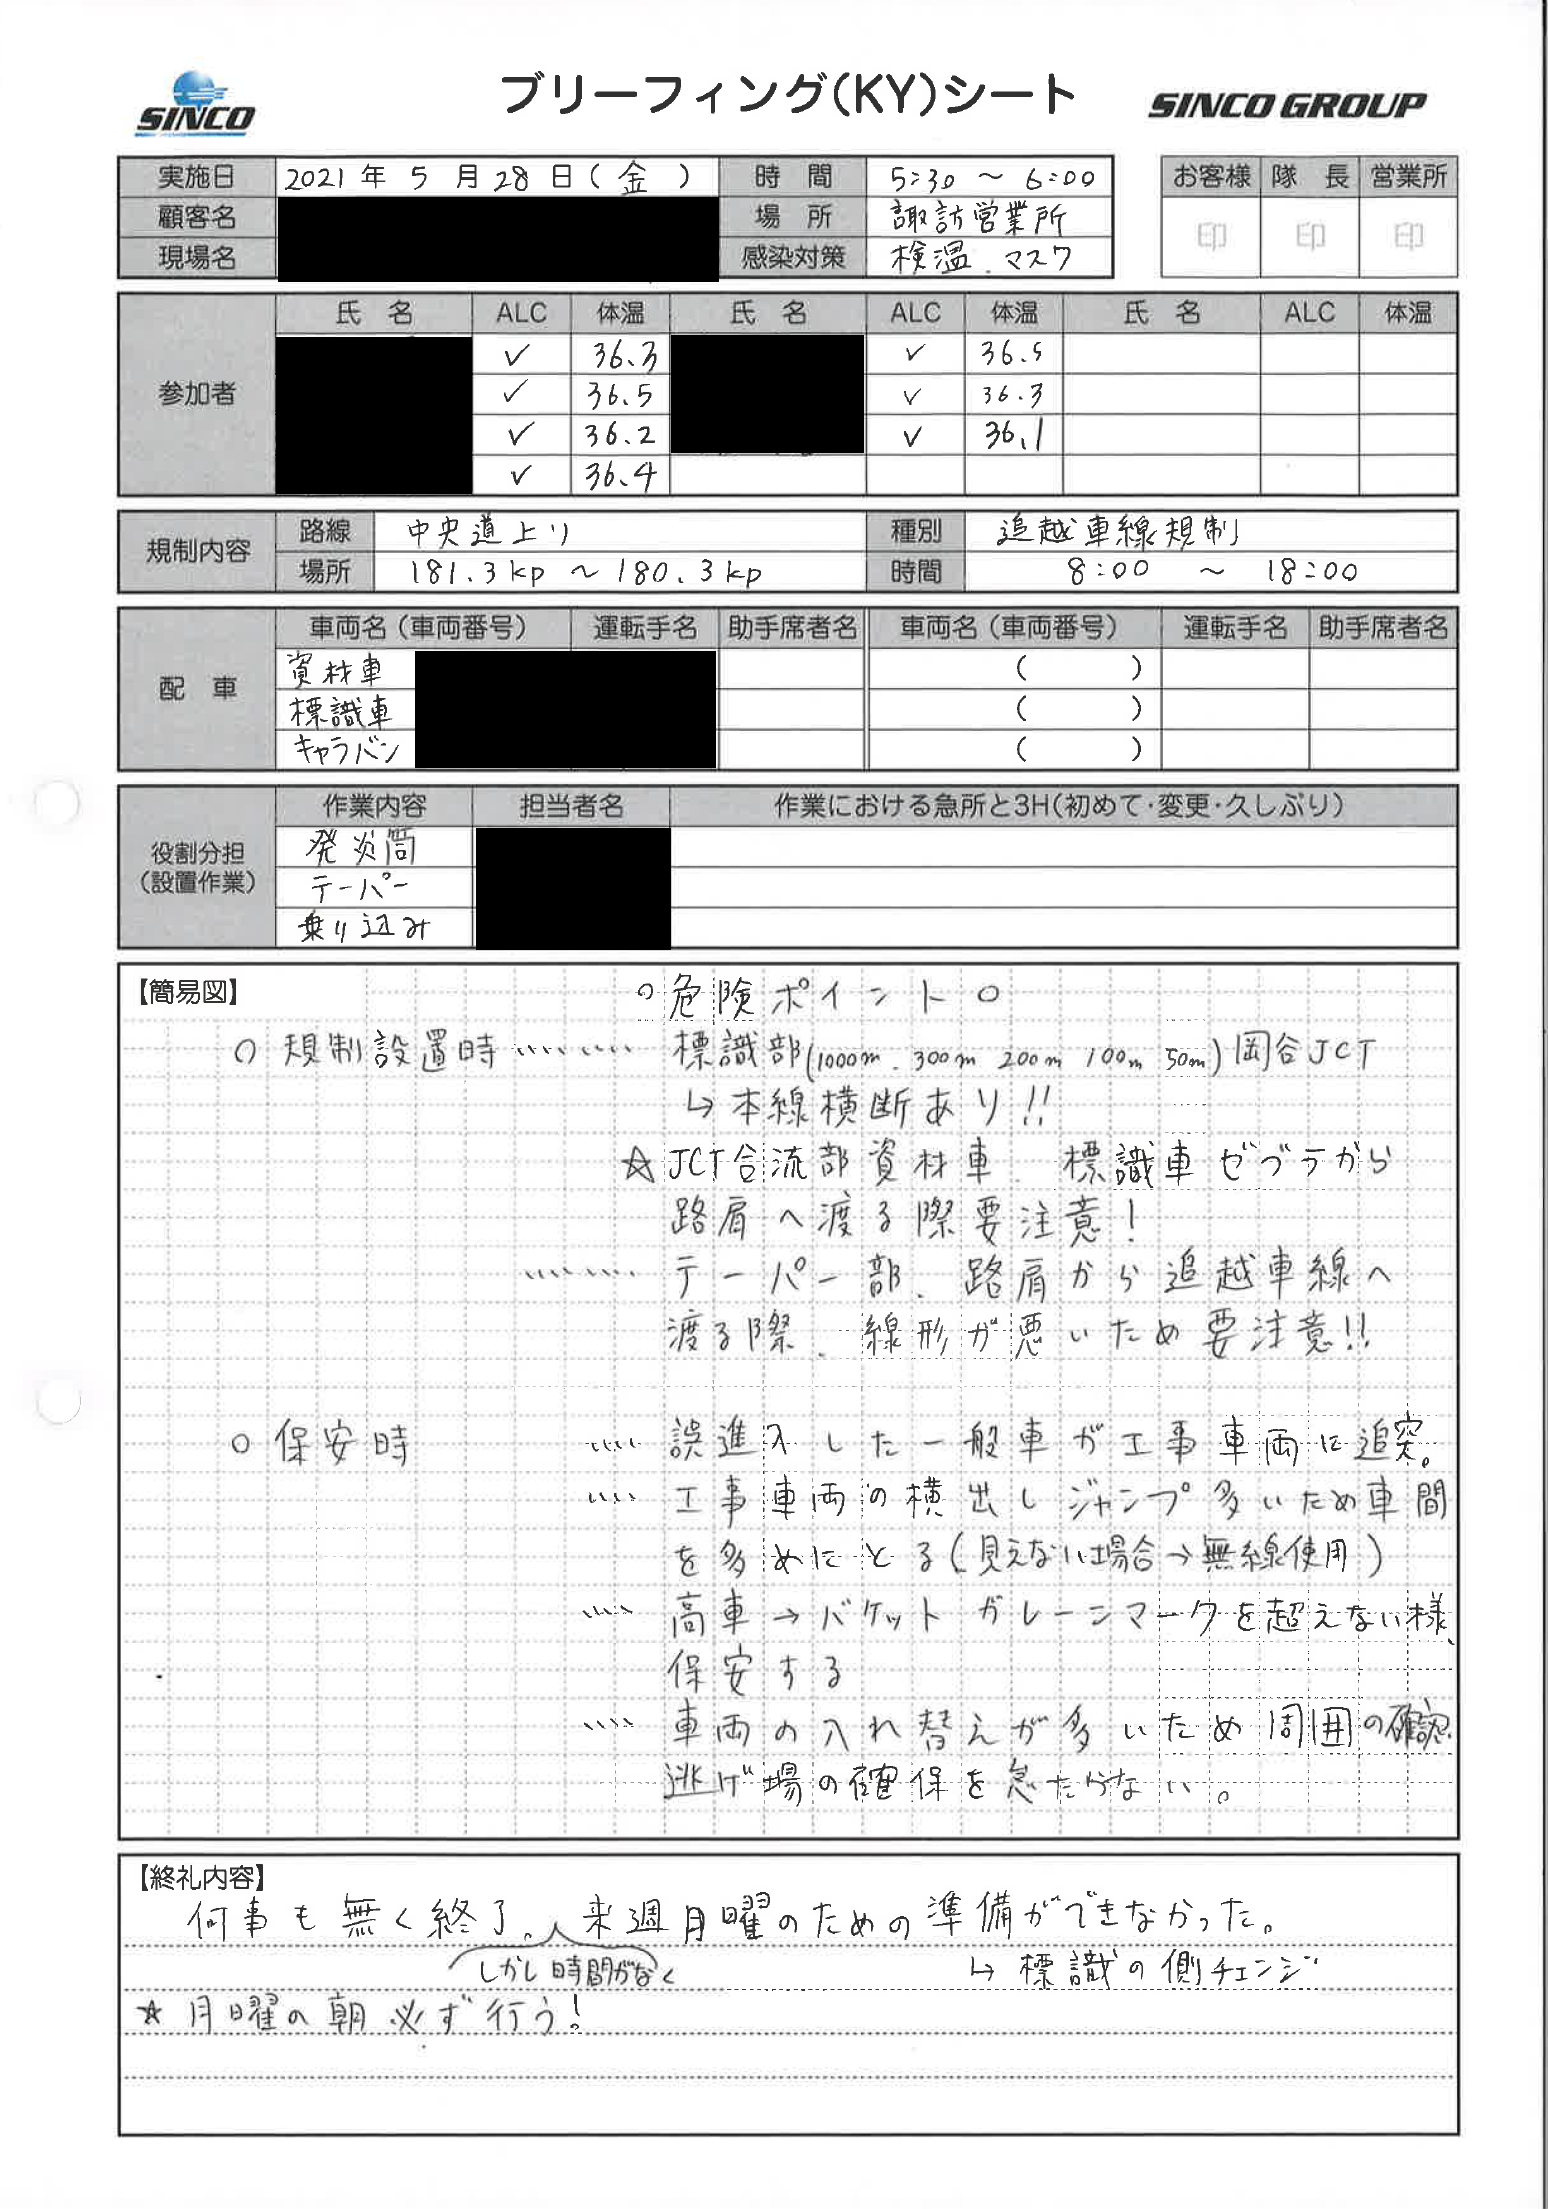 SINCO
ブリーフィング(KY)シート
SINCO GROUP
実施日 2021年 5 月 28 日(金) 時間 5:30 ～ 6:00
お客様 隊長 営業所
顧客名 場所 諏訪営業所
印 印 印
現場名 感染対策 検温、マスク
参加者
氏名 ALC 体温 氏名 ALC 体温 氏名 ALC 体温
✓ 36.3 ✓ 36.5
✓ 36.5 ✓ 36.3
✓ 36.2 ✓ 36.1
✓ 36.4
規制内容
路線 中央道上り 種別 追越車線規制
場所 181.3kp ～ 180.3kp 時間 8:00 ～ 18:00
配車
車両名(車両番号) 運転手名 助手席者名 車両名(車両番号) 運転手名 助手席者名
資材車 ( )
標識車 ( )
キャラバン ( )
役割分担
(設置作業)
作業内容 担当者名 作業における急所と3H(初めて・変更・久しぶり)
発炎筒
テーパー
乗り込み
【簡易図】
○危険ポイント○
○ 規制設置時 ‥‥‥‥ 標識部(1000m、300m 200m 100m 50m)岡谷JCT
↳本線横断あり!!
☆JCT合流部資材車、標識車ゼブラから
路肩へ渡る際要注意!
‥‥‥‥ テーパー部、路肩から追越車線へ
渡る際、線形が悪いため要注意!!
○ 保安時 ‥‥ 誤進入した一般車が工事車両に追突。
‥‥ 工事車両の横出しジャンプ多いため車間
を多めにとる(見えない場合→無線使用)
‥‥ 高車→バケットがレーンマークを超えない様、
保安する
‥‥ 車両の入れ替えが多いため周囲の確認、
逃げ場の確保を怠たらない。
【終礼内容】
何事も無く終了。来週月曜のための準備ができなかった。
しかし時間がなく ↳標識の側チェンジ
☆月曜の朝必ず行う!